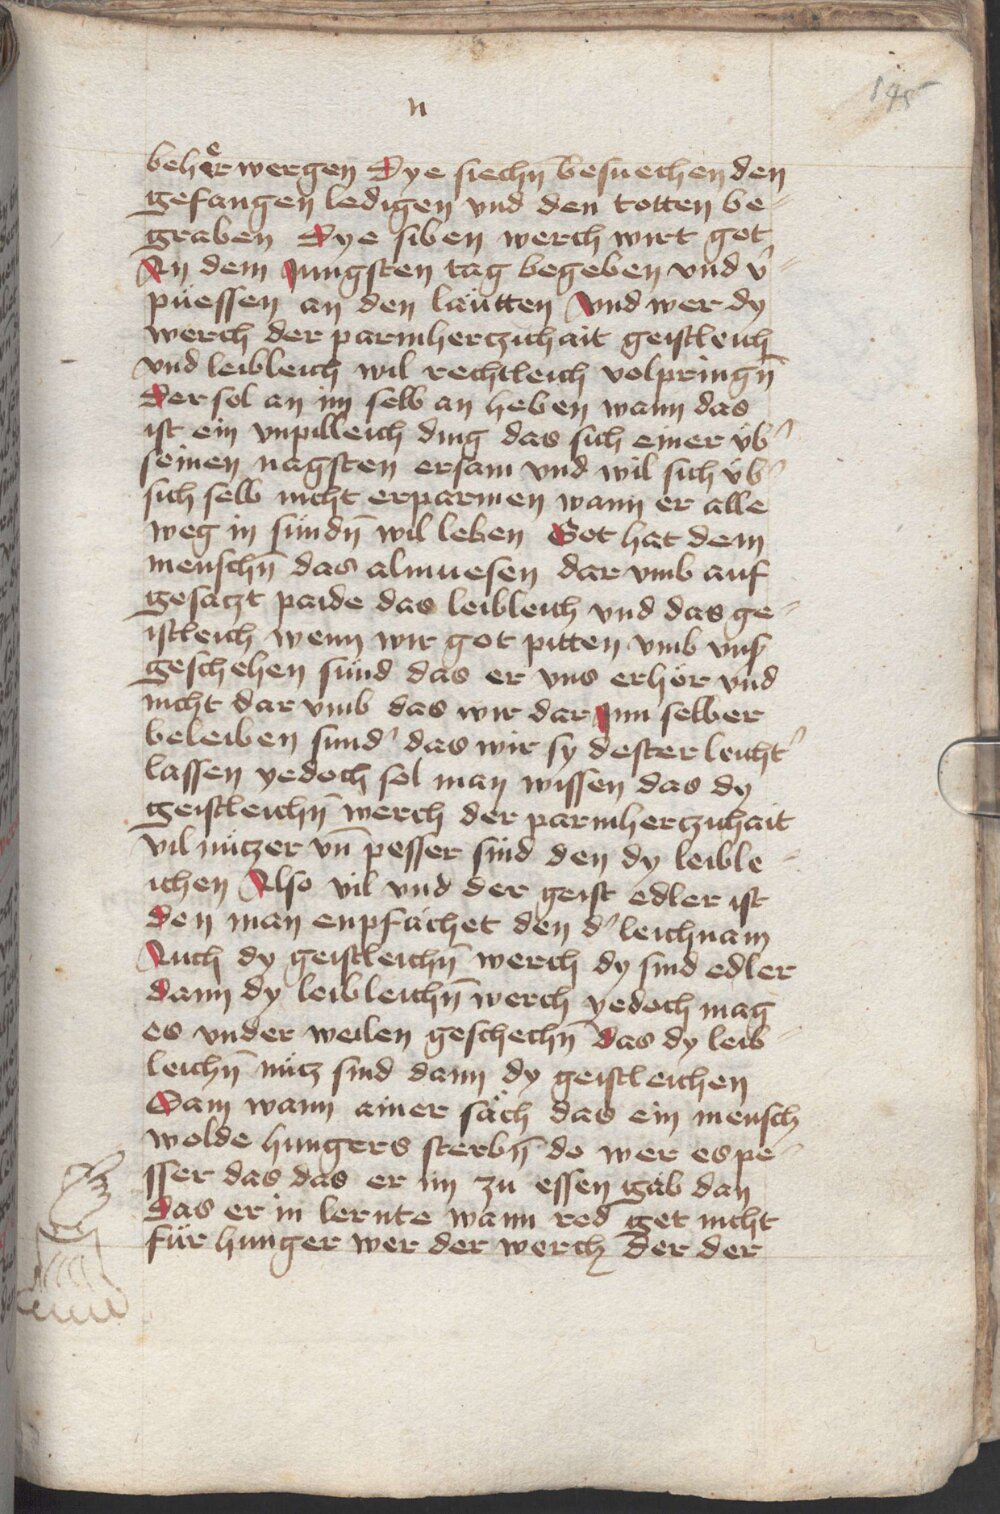 n
145
beherwergen Dye siechn̄ besuechen den
gefangen ledigen vnd den totten be-
graben Dye siben werch wirt got
An dem Jungsten tag begeben vnd v̉-
püessen an den läutten Vnd wer dy
werch der parmherczichait geistleich
vnd leibleich wil rechtleich volpringn̄
Der sol an im selb an heben wann das
ist ein vnpilleich ding das sich einer üb̉
seinen nagsten ersam vnd wil sich üb̉
sich selb nicht erparmen wann er alle
weg in sündn̄ wil leben Got hat dem
menschn̄ das almuesen dar vmb auf
gesaczt paide das leibleich vnd das ge-
istleich wenn wir got pitten vmb vnß
geschehen sünd das er vns erhör vnd
nicht dar vmb das wir dar Inn selber
beleiben sund̉ das wir sy dester leicht̉
lassen yedoch sol man wissen das dy
geistleichn̄ werch der parmherczichait
vil nüczer vn̄ pesser sind den dy leible-
ichen Also vil vnd der geist edler ist
den man enpfächet den d̉ leichnam
Auch dy geistleichn̄ werch dy sind edler
dann dy leibleichn̄ werch yedoch mag
es vnder weilen geschechn̄ das dy leib-
leichn̄ nücz sind dann dy geistleichen
Sam wann ainer säch das ein mensch
wolde hungers sterbn̄ do wer es pe-
sser das das er im zu essen gäb dan
das er in lernte wann red get nicht
für hunger wer der werch der der